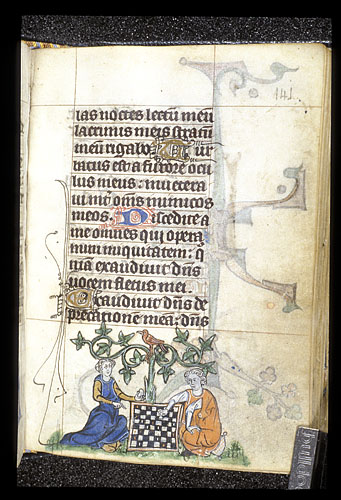 141
las noctes lectū meū
lacrimis meis stratū
meū rigabo Tur
batus est a furore ocu
lus meus: inuetera
ui int' om̄s inimicos
meos. Discedite a
me omnes qui opera
mini iniquitatem: q̄
niā exaudiuit dn̄s
uocem fletus mei.
Exaudiuit dn̄s de
precatione meā: dn̄s